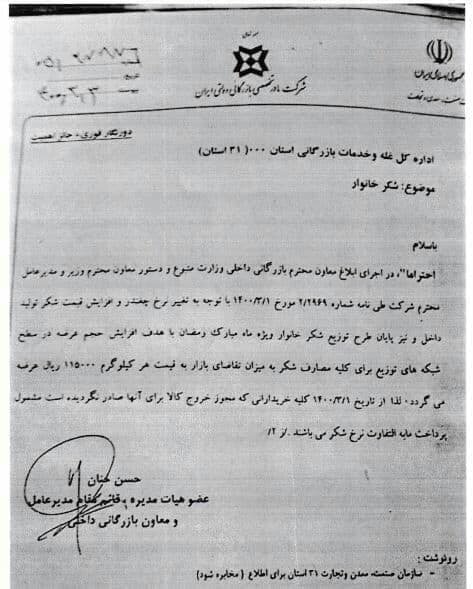 شرکت مادر تخصصی بازرگانی دولتی ایران
جمهوری اسلامی ایران
دورنگار فوری - حائز اهمیت
اداره کل غله و خدمات بازرگانی استان ۰۰۰( ۳۱ استان)
موضوع: شکر خانوار
باسلام
احتراما"، در اجرای ابلاغ معاون محترم بازرگانی داخلی وزارت متبوع و دستور معاون محترم وزیر و مدیرعامل
محترم شرکت طی نامه شماره ۲/۲۹۶۹ مورخ ۱۴۰۰/۳/۱ با توجه به تغییر نرخ چغندر و افزایش قیمت شکر تولید
داخل و نیز پایان طرح توزیع شکر خانوار ویژه ماه مبارک رمضان با هدف افزایش حجم عرضه در سطح
شبکه های توزیع برای کلیه مصارف شکر به میزان تقاضای بازار به قیمت هر کیلوگرم ۱۱۵۰۰۰ ریال عرضه
می گردد۰ لذا از تاریخ ۱۴۰۰/۳/۱ کلیه خریدارانی که مجوز خروج کالا برای آنها صادر نگردیده است مشمول
پرداخت مابه التفاوت نرخ شکر می باشند ./ز ۲/
حسن حنان
عضو هیات مدیره و قائم مقام مدیرعامل
و معاون بازرگانی داخلی
رونوشت :
- سازمان صنعت، معدن وتجارت ۳۱ استان برای اطلاع ( مخابره شود)